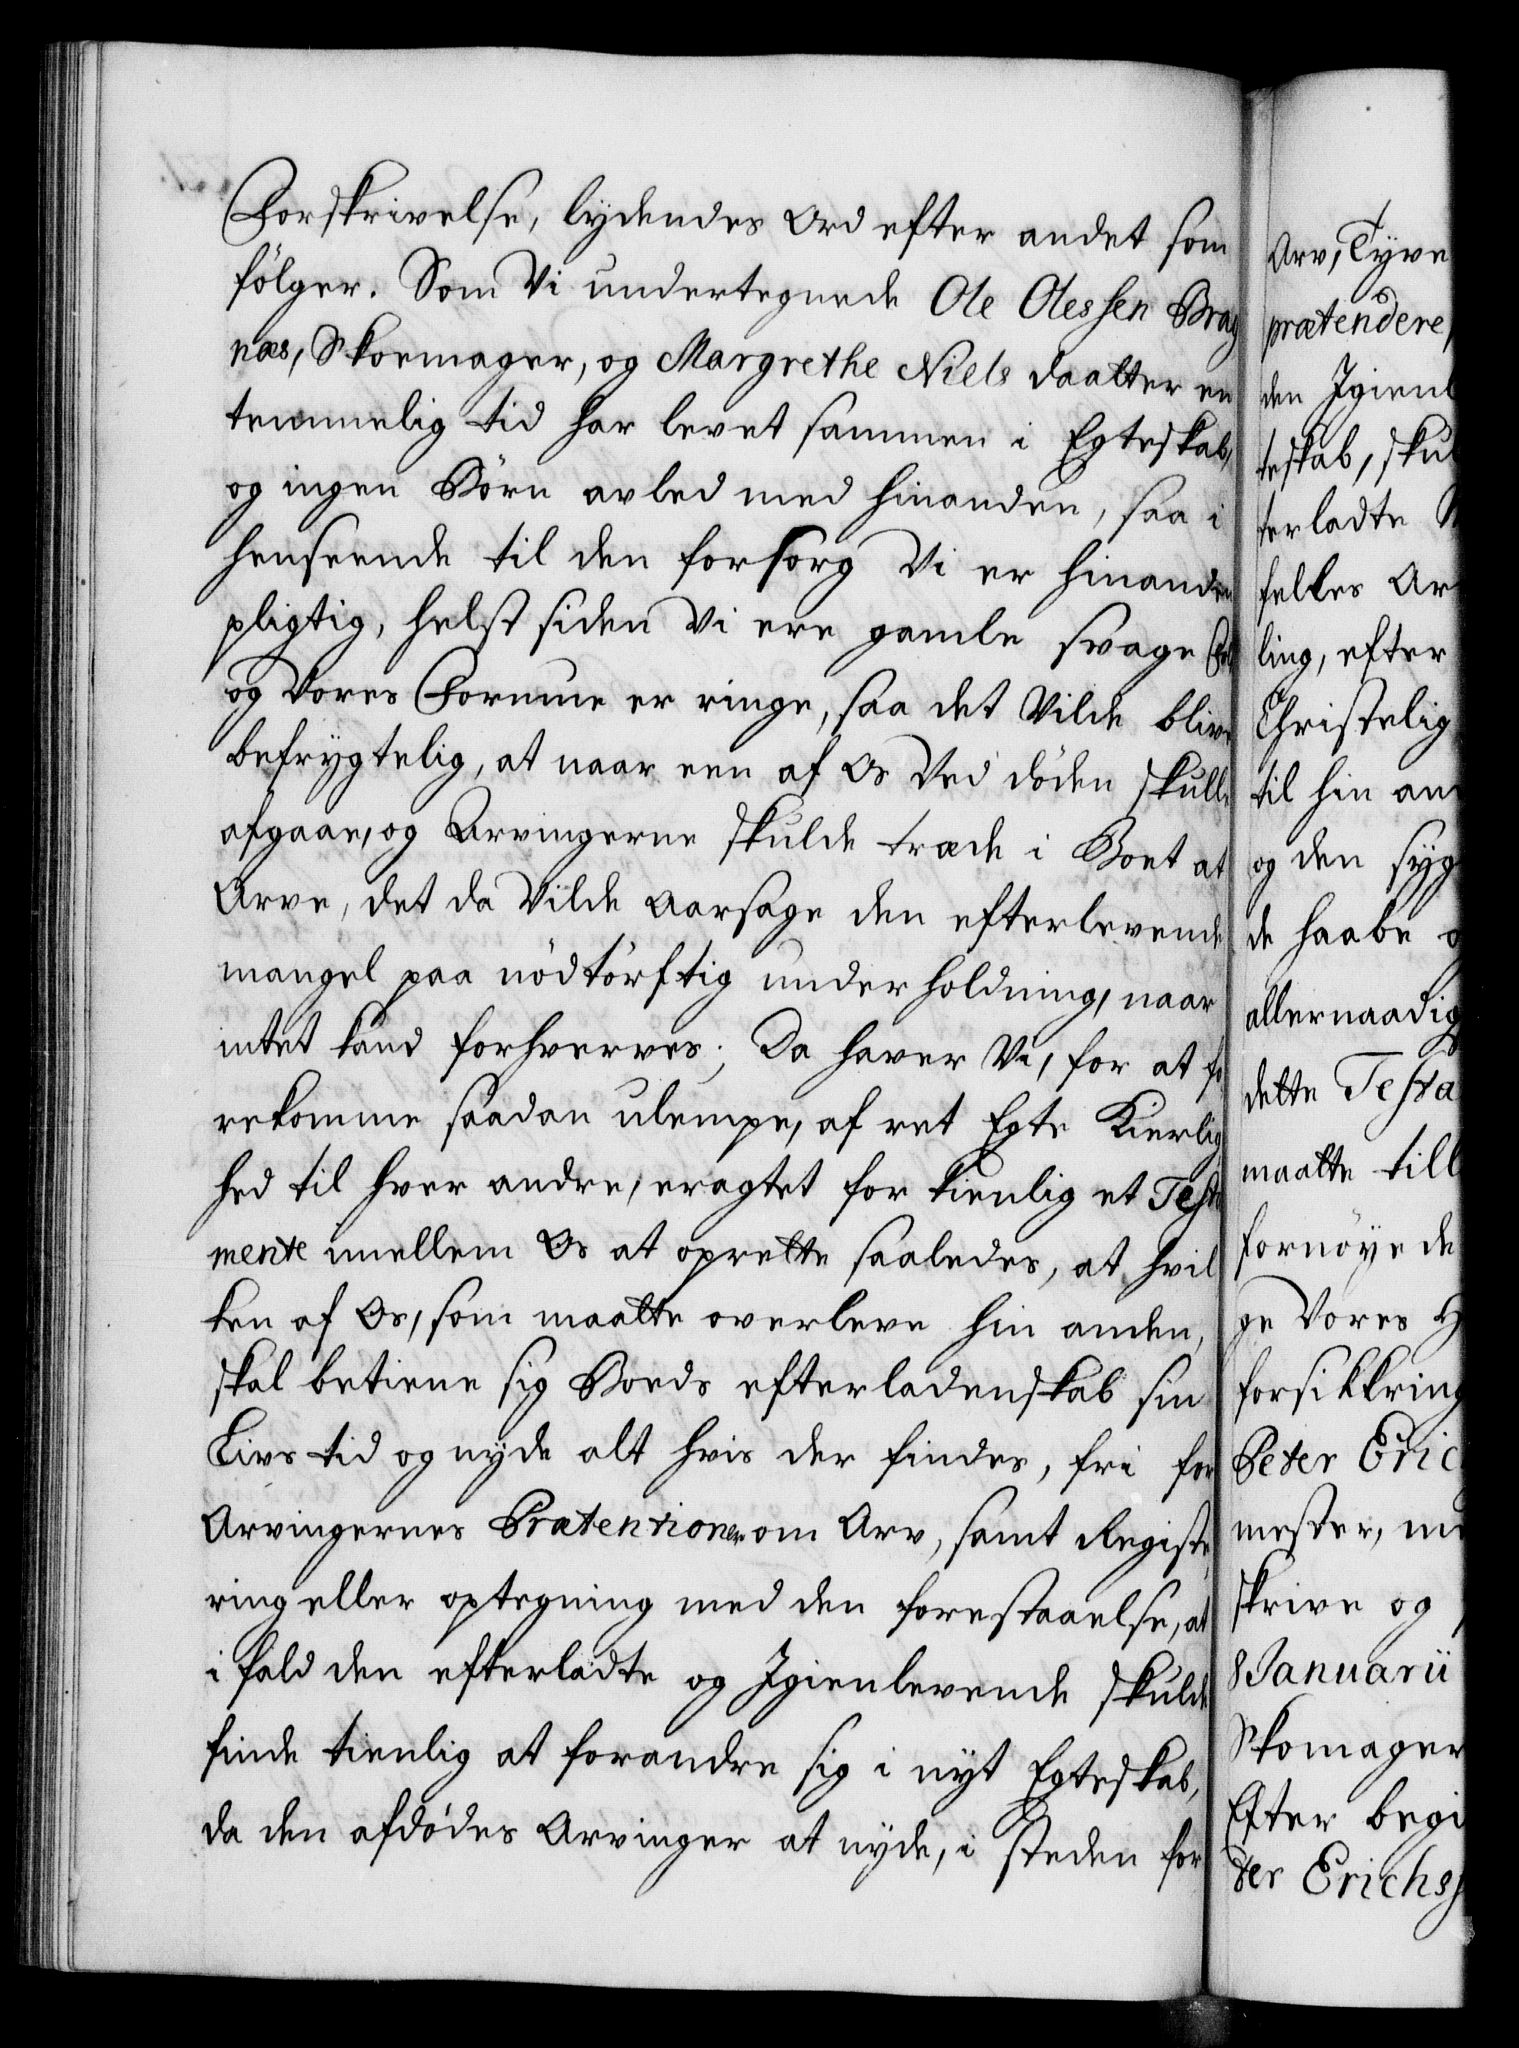 Forskrivelse, lydendes Ord efter andet som
fölger. Som Vi undertegnede Ole Olessen Brag
næs, Skoemager, og Margrethe Niels daatter en
temmelig tid har levet sammen i Egteskab,
og ingen Börn avled med hinanden, saa i
henseende til den forsorg Vi er hinanden
pligtig, helst siden Vi ere gamle svage Fol
og Vores Formue er ringe, saa det Vilde blive
befrygtelig, at naar een af Os Ved döden skulle
afgaae, og Arvingerne skulde træde i Boet at
Arve, det da Vilde Aarsage den efterlevende
mangel paa nödtörftig underholdning, naar
intet kand forhverves; Da haver Vi, for at fo
rekomme saadan ulempe, af ret Egte Kierlig
hed til hver andre, eragtet for tienlig et Testa
mente imellem Os at oprette saaledes, at hvil
ken af Os, som maatte overleve hin anden,
skal betiene sig Boeds efterladenskab sin
Livs tid og nyde alt hvis der findes, fri for
Arvingernes Prætentioner om Arv, samt Registe
ring eller optegning med den forestaaelse, at
i fald den efterladte og Igienlevende skulde
finde tienlig at forandre sig i nyt Egteskab,
da den afdödes Arvinger at nyde, i steden for
Arv, Tyve
prætendere,
den Igienl
teskab, skul
terladte
felles Ar
ling, efter
Christelig
til hin an
og den syg
de haabe o
allernaadig
dette Testa
maatte till
fornöyede
ge Vores H
forsikkring
Peter Eric
mester, me
skrive og
8 Januarii
Skomager
Efter begi
ter Erichss